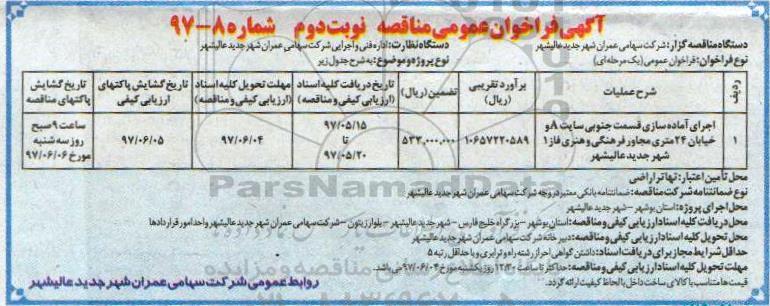 آگهی فراخوان عمومی مناقصه نوبت دوم شماره ۸-۹۷
دستگاه مناقصه گزار: شرکت سهامی عمران شهر جدید عالیشهر
دستگاه نظارت: اداره فنی و اجرایی شرکت سهامی عمران شهر جدید عالیشهر
نوع فراخوان: فراخوان عمومی (یک مرحله ای)
نوع پروژه و موضوع: به شرح جدول زیر
ردیف
شرح عملیات
برآورد تقریبی (ریال)
تضمین (ریال)
تاریخ دریافت کلیه اسناد (ارزیابی کیفی و مناقصه)
مهلت تحویل کلیه اسناد (ارزیابی کیفی و مناقصه)
تاریخ گشایش پاکتهای ارزیابی کیفی
تاریخ گشایش پاکتهای مناقصه
۱
اجرای آماده سازی قسمت جنوبی سایت A و
خیابان ۲۴ متری مجاور فرهنگی و هنری فاز ۱
شهر جدید عالیشهر
۱۰۶۵۷۲۲۰۵۸۹
۵۳۳,۰۰۰,۰۰۰
۹۷/۰۵/۱۵
تا
۹۷/۰۵/۲۰
۹۷/۰۶/۰۴
۹۷/۰۶/۰۵
ساعت ۹ صبح
روز سه شنبه
مورخ ۹۷/۰۶/۰۶
محل تأمین اعتبار: تهاتر اراضی
نوع ضمانتنامه شرکت مناقصه: ضمانتنامه بانکی معتبر در وجه شرکت سهامی عمران شهر جدید عالیشهر
محل اجرای پروژه: استان بوشهر - شهر جدید عالیشهر
محل دریافت کلیه اسناد ارزیابی کیفی و مناقصه: استان بوشهر - بزرگراه خلیج فارس - شهر جدید عالیشهر - بلوار زیتون - شرکت سهامی عمران شهر جدید عالیشهر واحد امور قراردادها
محل تحویل کلیه اسناد ارزیابی کیفی و مناقصه: دبیرخانه شرکت سهامی عمران شهر جدید عالیشهر
حداقل شرایط مجاز برای دریافت اسناد: داشتن گواهی احراز رشته راه و ترابری و با حداقل رتبه ۵
مهلت تحویل کلیه اسناد ارزیابی کیفی و مناقصه: حداکثر تا ساعت ۱۲:۳۰ روز یکشنبه مورخ ۹۷/۰۶/۰۴ می باشد.
قیمت ها متناسب با کالای ساخت داخل با لحاظ کیفیت ارائه گردد.
روابط عمومی شرکت سهامی عمران شهر جدید عالیشهر
ParsNamadData